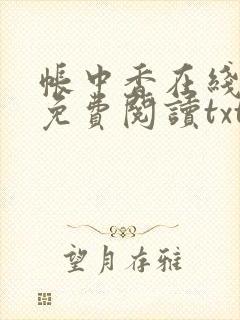 帳中香在綫
免費閱讀txt
望月存雅